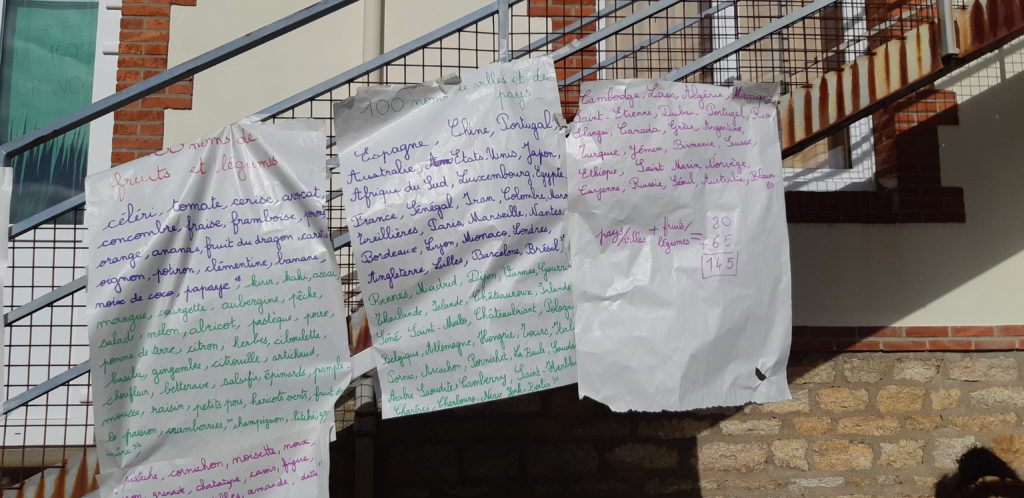 100
BRAVO
noms de
fruits et légumes
céléri, tomate, cerise, avocat,
concombre, fraise, framboise, pomme
orange, ananas, fruit du dragon,
oignon, potiron, clémentine, banane,
noix de coco, papaye, kiwi, kaki,
mangue, courgette, aubergine, pêche,
salade, melon, abricot, pastèque, poire,
pomme de terre, citron, herbes, ciboulette,
basilic, gingembre, citrouille, artichaud,
choufleur, betterave, salsifis, épinards, pample
mousse, raisin, petits pois, haricots verts, fruit de
la passion, cramberries, champignon, litchi,
mûre
pistache, cornichon, noisette, noix
grenade, chataîgne, cassis, figue,
amande, datte
100 noms de villes et de
pays
Chine, Portugal,
Espagne,
Australie, États-Unis, Japon,
Afrique du Sud, Luxembourg, Égypte
France, Sénégal, Iran, Colombie,
Treillières, Paris, Marseille, Nantes,
Bordeaux, Lyon, Monaco, Londres,
Angleterre, Lilles, Barcelone, Brésil,
Rennes, Madrid, Dijon, Vannes,
Thaïlande, Islande, Châteauroux, Irlande
Séné, Saint-Malo, Châteaubriant, Pologne
Belgique, Allemagne, Hongrie, Tours, Itali
Pornic, Arcachon, Pornichet, La Baule,
Arabie Saoudite, Camberry, Saint-
Chartres, Cherbourg, New-York, Berlin 50
Cambodge, Laos, Algérie, Mexique
Saint-Etienne, Dubaï, Portugal, Rio
Canada, Grèce, Argentine,
Turquie, Yémen, Birmanie, Suisse,
Ethiopie, Saint Marin, Norvège,
Cayenne, Russie, Séoul, Australie,
80
pays/villes + fruits/légumes = 80
+ 65
145